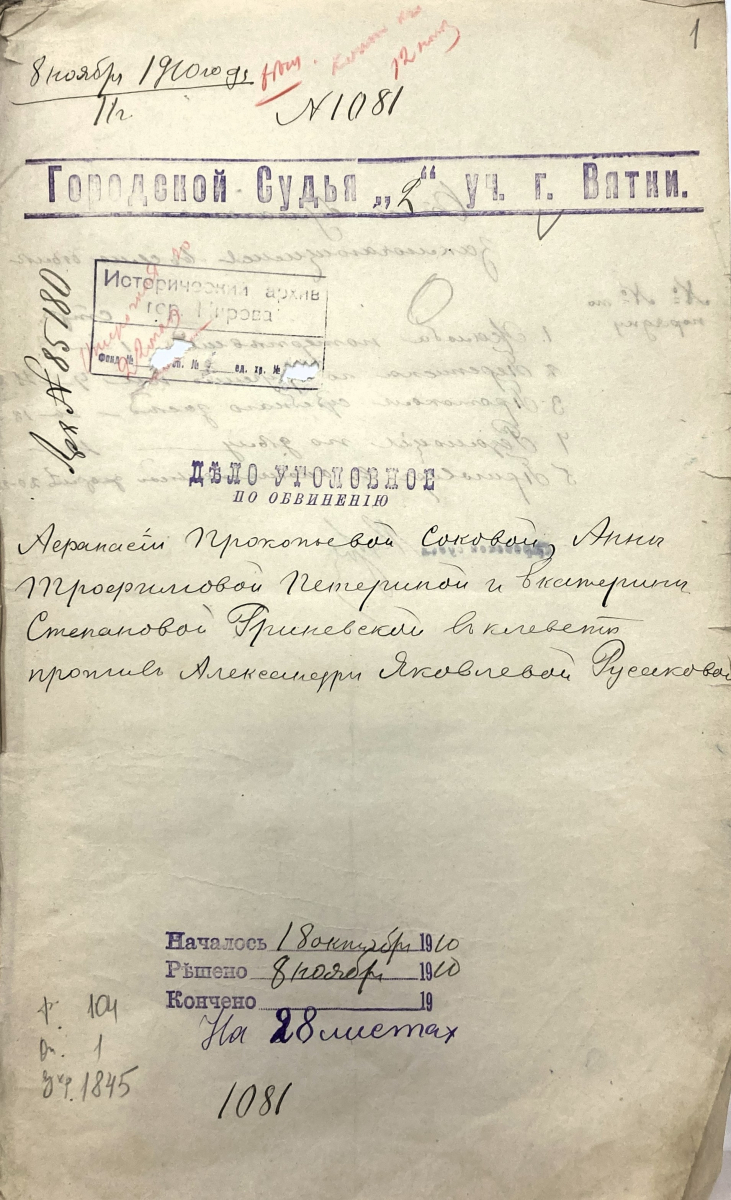 1
8 ноября 1910 года
11 г.
N 1081
Городской Судья „2“ уч. г. Вятки.
Исторический архив
гор. Кирова
Фонд №
ед. хр. №
N 85180
ДѢЛО УГОЛОВНОЕ
ПО ОБВИНЕНІЮ
Афанасіи Прокопьевой Соковой, Анны
Трофимовой Петериной и Екатерины
Степановой Гриневской въ клеветѣ
противъ Александры Яковлевой Русаковой
Началось 18 октября 1910
Рѣшено 8 ноября 1910
Кончено 19
На 28 листах
ф. 104
Оп. 1
Ухр. 1845
1081